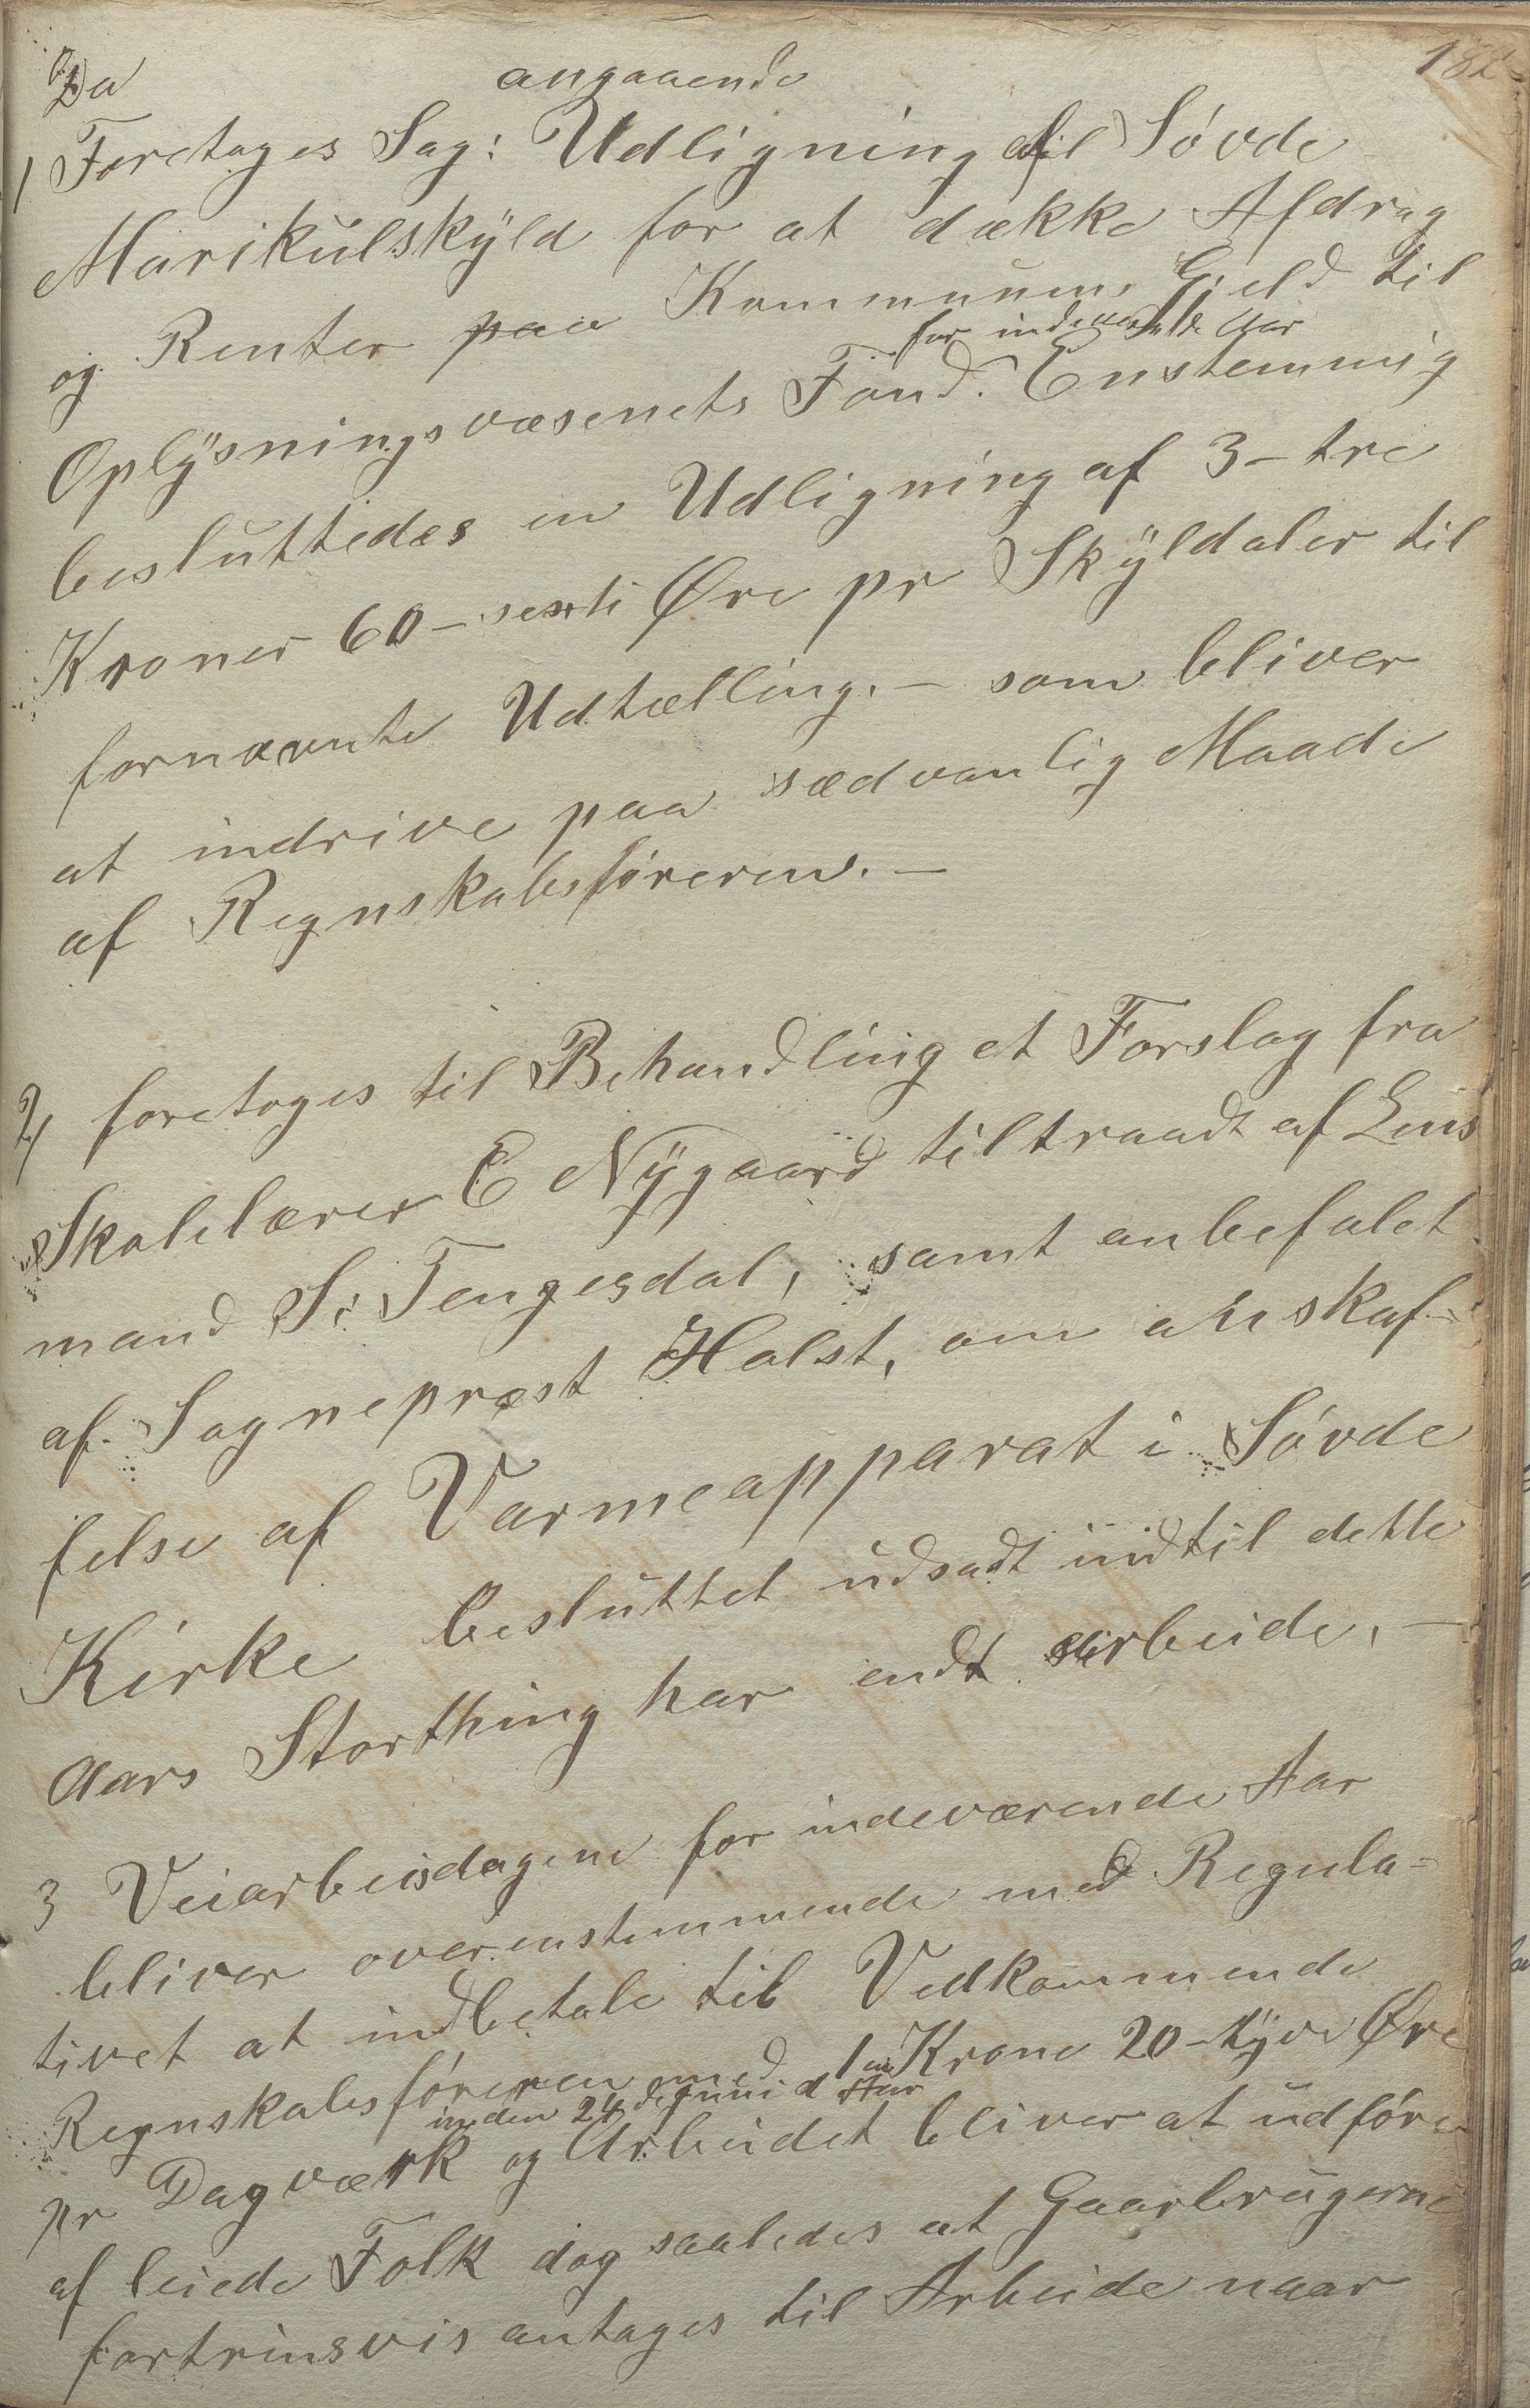 182
Da
angaaende
1 Foretages Sag: Udligning af Søvde
Marikulskyld for at dække Afdrag
og Renter paa Kommunens Gjeld til
for indeværende Aar
Oplysningsvæsenets Fond. Enstemmig
besluttedes en Udligning af 3 – tre
Kroner 60 – sexti Øre pr Skyldaler til
fornævnte Udtælling. – som bliver
at indrive paa sædvanlig Maade
af Regnskabsføreren. –
2/ foretoges til Behandling et Forslag fra
Skolelærer E Nygaard tiltraadt af Lens
mand S. Tengesdal, samt anbefalet
af Sognepræst Halst, om anskaf-
felse af Varmeapparat i Søvde
Kirke besluttet udsadt indtil dette
Aars Storthing har endt arbeide. –
3 Veiarbeisdagene for indeværende Aar
bliver overenstemmende med Regula-
tivet at indbetale til Vedkommende
Regnskabsføreren med 1 en Krone 20 – tyve Øre
inden 24de Juni d Aar
pr Dagværk og Arbeidet bliver at udføre
af leiede Folk dog saaledes at Gaarbrugerne
fortrinsvis antages til Arbeide naar